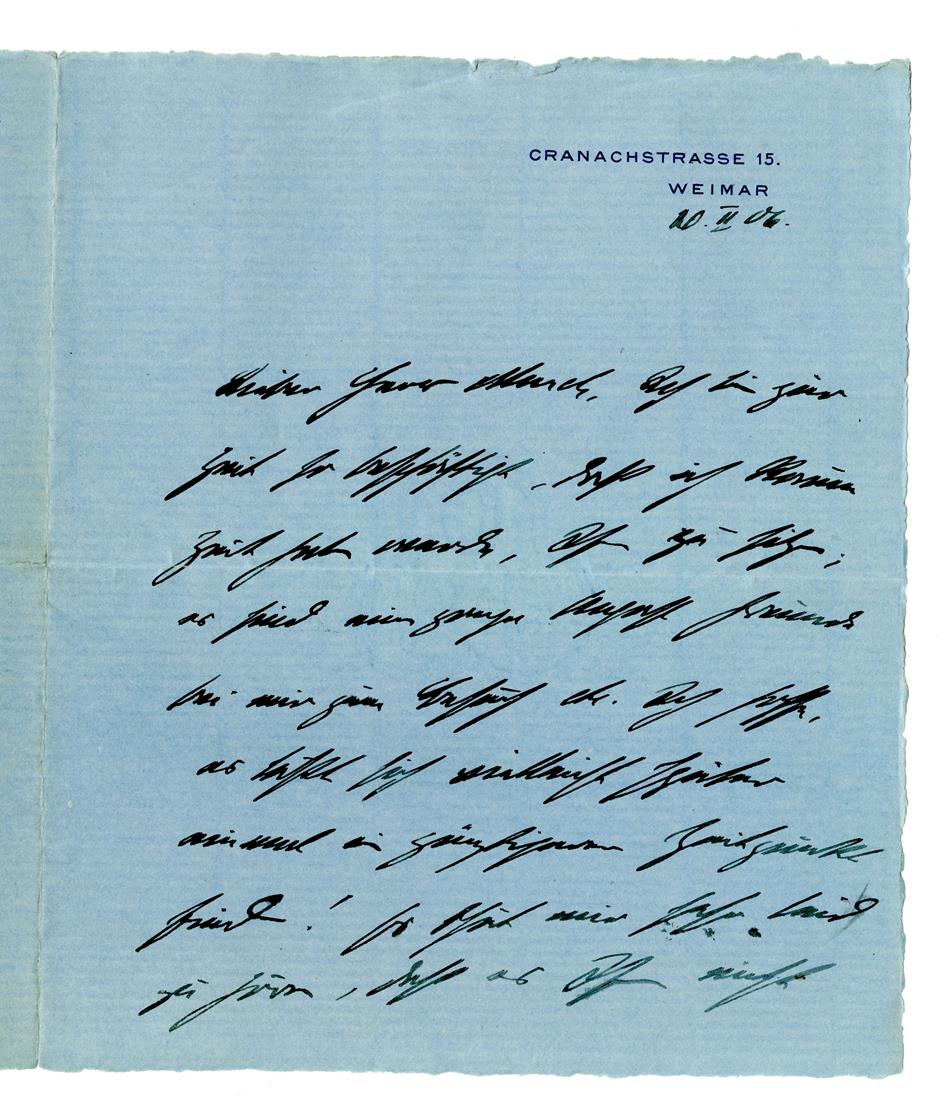 CRANACHSTRASSE 15.
WEIMAR
20. II 06.
Lieber Herr Munch, Ich bin zur
Zeit so beschäftigt, dass ich kaum
Zeit haben werde, Ihnen zu sitzen;
es sind eine ganze Anzahl Freunde
bei mir zum Besuch da. Ich hoffe,
es lässt sich vielleicht später
einmal ein günstigerer Zeitpunkt
finden! Es thut mir sehr leid
zu hören, dass es Ihnen nicht